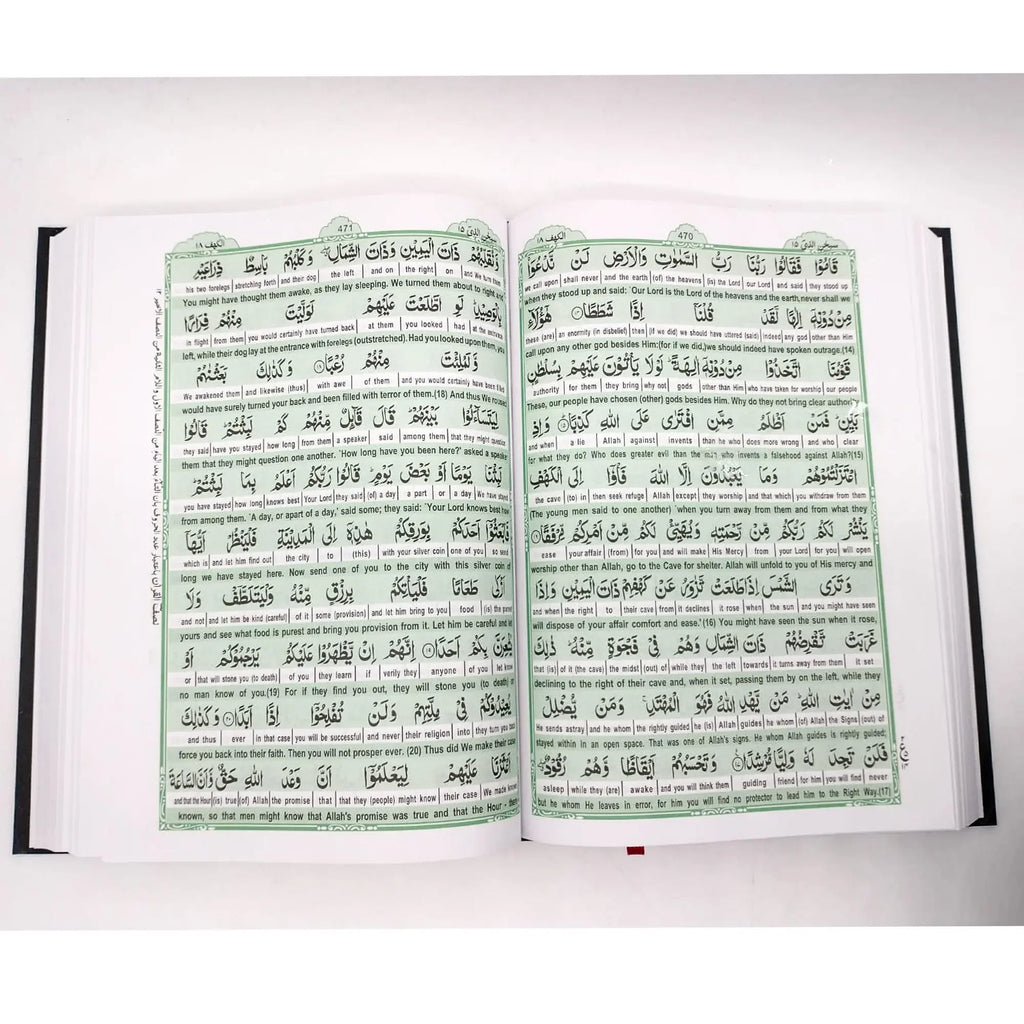 الكهف ١٨ 470 سبحٰن الذىٓ ١٥
قَامُوْا فَقَالُوْا رَبُّنَا رَبُّ السَّمٰوٰتِ وَالْاَرْضِ لَنْ نَّدْعُوَا۟
we call upon shall never and the earth (of) the heavens (is) the Lord our Lord and said they stood up
when they stood up and said: `Our Lord is the Lord of the heavens and the earth,never shall we
مِنْ دُوْنِهٖٓ اِلٰهًا لَّقَدْ قُلْنَآ اِذًا شَطَطًا ﴿١٤﴾ هٰٓؤُلَآءِ
these (are) an enormity (in disbelief) then (if we did) we should have uttered (said) indeed any god other than Him
call upon any other god besides Him:(for if we did,)we should indeed have spoken outrage.(14)
قَوْمُنَا اتَّخَذُوْا مِنْ دُوْنِهٖٓ اٰلِهَةً ؕ لَوْ لَا يَاْتُوْنَ عَلَيْهِمْ بِسُلْطٰنٍۢ
authority for them they bring why not gods other than Him who have taken for worship our people
These, our people have chosen (other) gods besides Him. Why do they not bring clear authority
بَيِّنٍ ؕ فَمَنْ اَظْلَمُ مِمَّنِ افْتَرٰى عَلَى اللّٰهِ كَذِبًا ﴿١٥﴾ وَاِذِ
and when a lie Allah against invents than he who does more wrong and who clear
for what they do? Who does greater evil than the man who invents a falsehood against Allah?(15)
اعْتَزَلْتُمُوْهُمْ وَمَا يَعْبُدُوْنَ اِلَّا اللّٰهَ فَاْوٗٓا اِلَى الْكَهْفِ
the cave (to) in then seek refuge Allah except they worship and that which you withdraw from them
(The young men said to one another) `when you turn away from them and from what they
يَنْشُرْ لَكُمْ رَبُّكُمْ مِّنْ رَّحْمَتِهٖ وَيُهَيِّئْ لَكُمْ مِّنْ اَمْرِكُمْ مِّرْفَقًا ﴿١٦﴾
ease your affair (from) for you and will make His Mercy from your Lord for you will open
worship other than Allah, go to the Cave for shelter. Allah will unfold to you of His mercy and
وَتَرَى الشَّمْسَ اِذَا طَلَعَتْ تَّزٰوَرُ عَنْ كَهْفِهِمْ ذَاتَ الْيَمِيْنِ وَاِذَا
and when the right to their cave from it declines it rose when the sun and you might have seen
will dispose of your affair comfort and ease.'(16) You might have seen the sun when it rose,
غَرَبَتْ تَّقْرِضُهُمْ ذَاتَ الشِّمَالِ وَهُمْ فِيْ فَجْوَةٍ مِّنْهُ ؕ ذٰلِكَ
that (is) of it (cave) the midst (out) of while they the left towards it turns away from them it set
declining to the right of their cave and, when it set, passing them by on the left, while they
مِنْ اٰيٰتِ اللّٰهِ ؕ مَنْ يَّهْدِ اللّٰهُ فَهُوَ الْمُهْتَدِ ۚ وَمَنْ يُّضْلِلْ
He sends astray and he whom the rightly guided he (is) Allah guides he whom (of) Allah the Signs (out) of
stayed within in an open space. That was one of Allah's signs. He whom Allah guides is rightly guided;
فَلَنْ تَجِدَ لَهٗ وَلِيًّا مُّرْشِدًا ﴿١٧﴾ وَتَحْسَبُهُمْ اَيْقَاظًا وَّهُمْ رُقُوْدٌ
asleep while they (are) awake and you will think them guiding friend for him you will find never
but he whom He leaves in error, for him you will find no protector to lead him to the Right Way.(17)
الكهف ١٨ 471 سبحٰن الذىٓ ١٥
وَّنُقَلِّبُهُمْ ذَاتَ الْيَمِيْنِ وَذَاتَ الشِّمَالِ وَكَلْبُهُمْ بَاسِطٌ ذِرَاعَيْهِ
his two forelegs stretching forth and their dog the left and on the right on and We turned them
You might have thought them awake, as they lay sleeping. We turned them about to right and
بِالْوَصِيْدِ ؕ لَوِ اطَّلَعْتَ عَلَيْهِمْ لَوَلَّيْتَ مِنْهُمْ فِرَارًا
in flight from them you would certainly have turned back at them you looked had at the entrance
left, while their dog lay at the entrance with forelegs (outstretched). Had you looked upon them, you
وَّلَمُلِئْتَ مِنْهُمْ رُعْبًا ﴿١٨﴾ وَكَذٰلِكَ بَعَثْنٰهُمْ
We awakened them and likewise (thus) with awe of them and you would certainly have been filled
would have surely turned your back and been filled with terror of them.(18) And thus We roused
لِيَتَسَآءَلُوْا بَيْنَهُمْ ؕ قَالَ قَآئِلٌ مِّنْهُمْ كَمْ لَبِثْتُمْ ؕ قَالُوْا
they said have you stayed how long from them a speaker said among them that they might question
them that they might question one another. `How long have you been here?' asked a speaker
لَبِثْنَا يَوْمًا اَوْ بَعْضَ يَوْمٍ ؕ قَالُوْا رَبُّكُمْ اَعْلَمُ بِمَا لَبِثْتُمْ ؕ
you have stayed how long knows best Your Lord they said (of) a day a part or a day We have stayed
from among them. `A day, or part of a day,' said some; they said: `Your Lord knows best how
فَابْعَثُوْٓا اَحَدَكُمْ بِوَرِقِكُمْ هٰذِهٖٓ اِلَى الْمَدِيْنَةِ فَلْيَنْظُرْ اَيُّهَآ
which is and let him find out the city to (this) with your silver coin one of you so send
long we have stayed here. Now send one of you to the city with this silver coin of
اَزْكٰى طَعَامًا فَلْيَاْتِكُمْ بِرِزْقٍ مِّنْهُ وَلْيَتَلَطَّفْ وَلَا
and not and let him be kind (careful) of it some (provision) and let him bring to you food (is) the purest
yours and see what food is purest and bring you provision from it. Let him be careful and let
يُشْعِرَنَّ بِكُمْ اَحَدًا ﴿١٩﴾ اِنَّهُمْ اِنْ يَّظْهَرُوْا عَلَيْكُمْ يَرْجُمُوْكُمْ اَوْ
or that will stone you (to death) of you they learn if verily they anyone of you let know
no man know of you.(19) For if they find you out, they will stone you (to death) or
يُعِيْدُوْكُمْ فِيْ مِلَّتِهِمْ وَلَنْ تُفْلِحُوْٓا اِذًا اَبَدًا ﴿٢٠﴾ وَكَذٰلِكَ
and thus ever in that case you will be successful and never their religion into they turn you back
force you back into their faith. Then you will not prosper ever. (20) Thus did We make their case
اَعْثَرْنَا عَلَيْهِمْ لِيَعْلَمُوْٓا اَنَّ وَعْدَ اللّٰهِ حَقٌّ وَّاَنَّ السَّاعَةَ
and that the Hour (is) true (of) Allah the promise that that they (people) might know their case We made known
known, so that men might know that Allah's promise was true and that the Hour - there